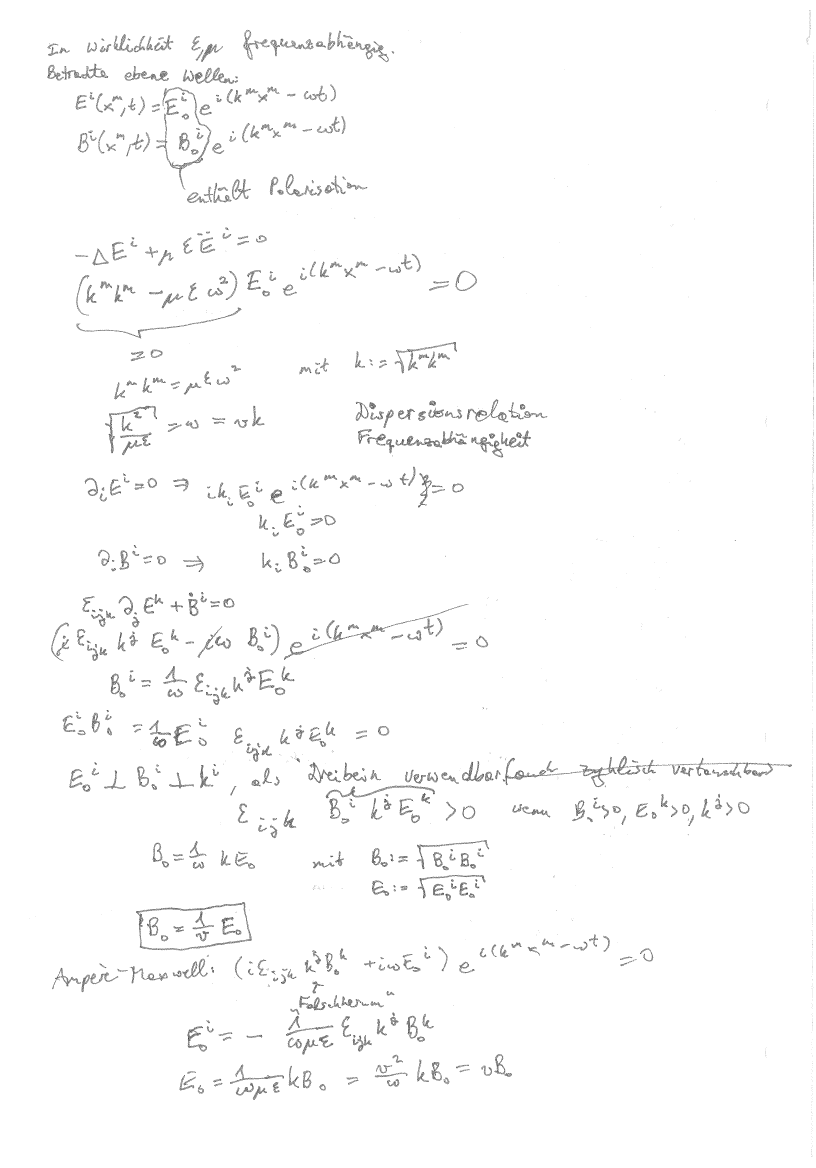 In Wirklichkeit ε,μ frequenzabhängig.
Betrachte ebene Wellen:
E^i(x^m,t) = E_0^i e^{i(k^m x^m − ωt)}
B^i(x^m,t) = B_0^i e^{i(k^m x^m − ωt)}
enthält Polarisation
−ΔE^i + μεË^i = 0
(k^m k^m − με ω²) E_0^i e^{i(k^m x^m − ωt)} = 0
= 0
k^m k^m = με ω² mit k := √(k^m k^m)
√(k²/με) = ω = vk Dispersionsrelation
Frequenzabhängigkeit
∂_i E^i = 0 ⇒ i k_i E_0^i e^{i(k^m x^m − ωt)} = 0
k_i E_0^i = 0
∂_i B^i = 0 ⇒ k_i B_0^i = 0
ε_{ijk} ∂_j E^k + Ḃ^i = 0
(i ε_{ijk} k^j E_0^k − iω B_0^i) e^{i(k^m x^m − ωt)} = 0
B_0^i = 1/ω ε_{ijk} k^j E_0^k
E_0^i B_0^i = 1/ω E_0^i ε_{ijk} k^j E_0^k = 0
E_0^i ⊥ B_0^i ⊥ k^i, als Dreibein verwendbar, zyklisch vertauschbar
ε_{ijk} B_0^i k^j E_0^k > 0 wenn B_0^i > 0, E_0^k > 0, k^j > 0
B_0 = 1/ω k E_0 mit B_0 := √(B_0^i B_0^i)
E_0 := √(E_0^i E_0^i)
B_0 = 1/v E_0
Ampère-Maxwell: (i ε_{ijk} k^j B_0^k + iω E_0^i) e^{i(k^m x^m − ωt)} = 0
↑
„Falschherum“
E_0^i = − 1/(ωμε) ε_{ijk} k^j B_0^k
E_0 = 1/(ωμε) k B_0 = v²/ω k B_0 = v B_0